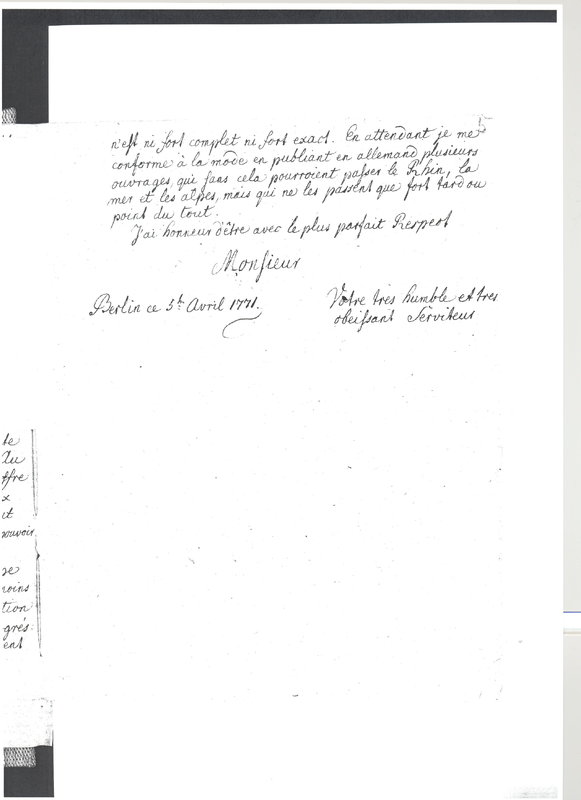 5
n'est ni fort complet ni fort exact. En attendant je me
conforme à la mode en publiant en allemand plusieurs
ouvrages, qui sans cela pourroient passer le Rhin, la
mer et les alpes, mais qui ne les passent que fort tard ou
point du tout.
J'ai honneur d'être avec le plus parfait Respect
Monsieur
Berlin ce 5t. Avril 1771.
Votre tres humble et tres
obeissant Serviteur
te
Du
ffre
x
et
pouvoir
re
moins
tion
grés
ent